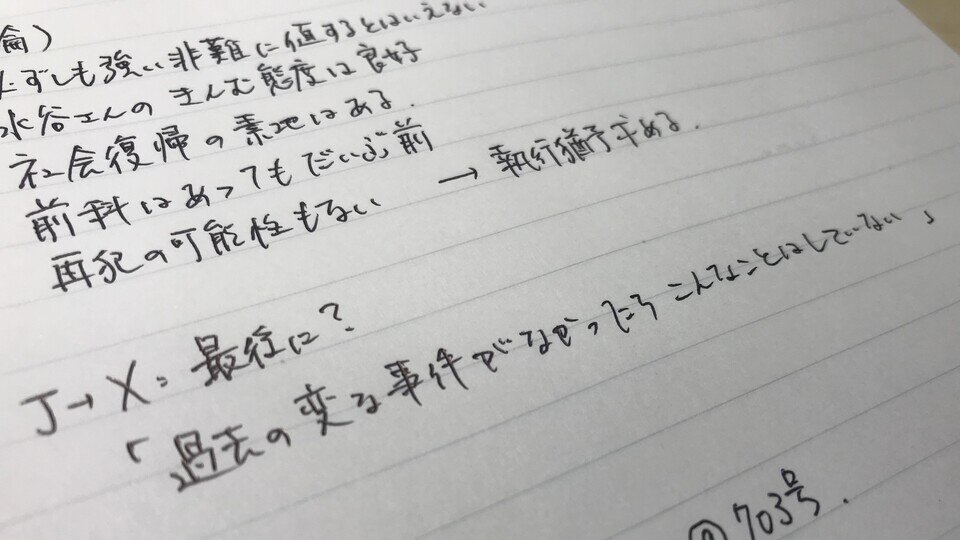 論）
必ずしも強い非難に値するとはいえない
水谷さんのきんむ態度は良好
社会復帰の素地はある.
前科はあってもだいぶ前
再犯の可能性もない → 執行猶予求める.
J→X: 最後に?
「過去の変な事件がなかったらこんなことはしていない」
703号.